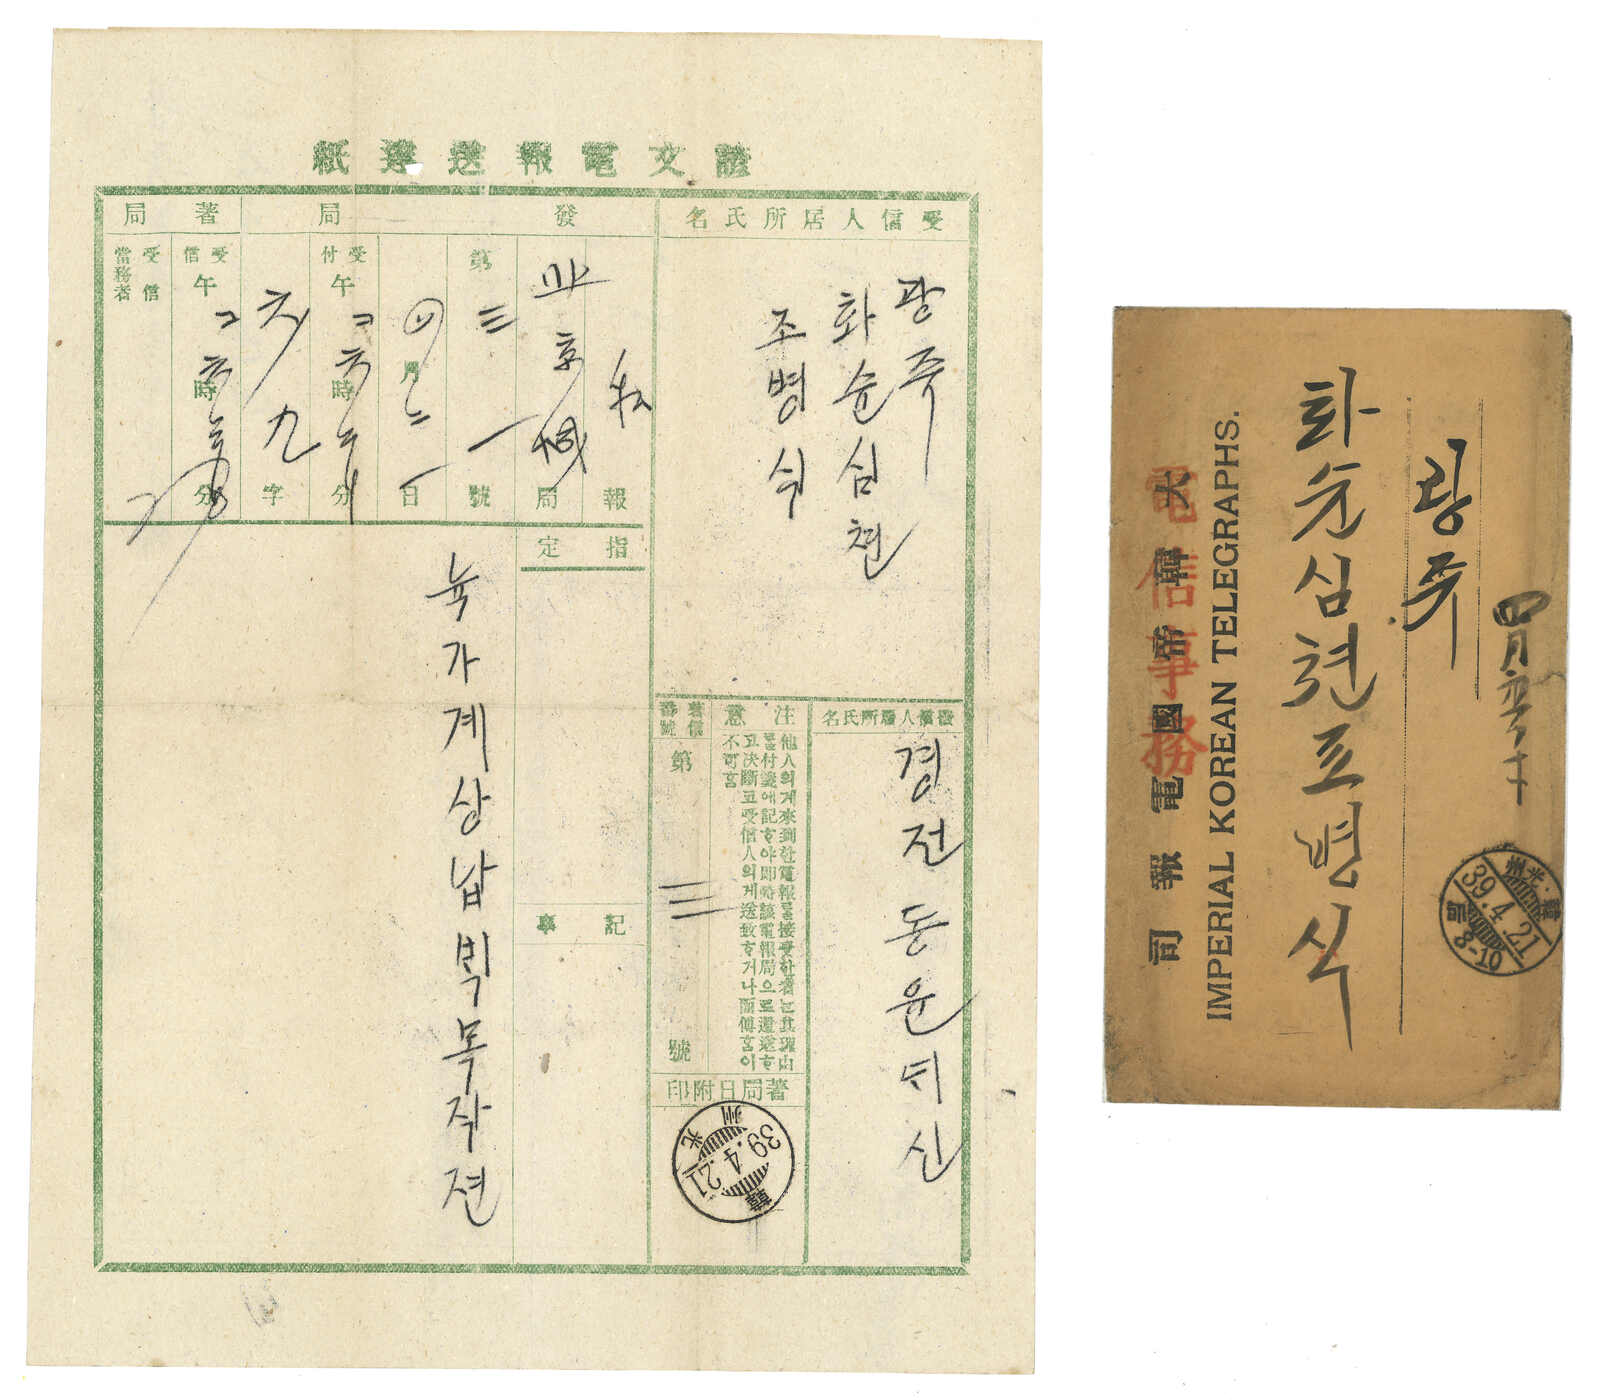 諺文電報送達紙
受信人居所氏名
광주
화순심현
조병식
發局
私報
京城局
第三一號
四月二一日
受付午コ六時
分
六九字
著局
受信午コ六時
分
受信當務者
指定
記事
發信人居所氏名
경전동윤녀신
注意
他人의게來到한電報를接受한者는其理由
를村箋에記ᄒᆞ야即時該電報局으로還送ᄒᆞ
고決斷코受信人의게送致ᄒᆞ거나面傳홈이
不可홈
著信番號
第三號
著局日附印
韓
39.4.21
光州
뉵가계상납빅목작젼
광주
화순심현조병식
大韓帝國電報司
電信事務
IMPERIAL KOREAN TELEGRAPHS.
韓
光州
39.4.21
8-10